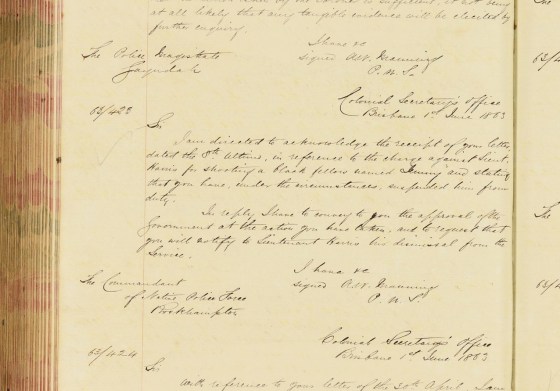 at all likely that any tangible evidence will be elicited by
further enquiry.
I have &c
The Police Magistrate
signed A.W. Manning
Gayndah
P. U. S.
Colonial Secretary's Office
Brisbane 1st June 1863
63/422
Sir
I am directed to acknowledge the receipt of your letter
dated the 8th Ultimo, in reference to the charge against Lieut.
Harris for shooting a black fellow named Jimmy and stating
that you have, under the circumstances, suspended him from
duty.
In reply I have to convey to you the approval of the
Government at the action you have taken, and to request that
you will notify to Lieutenant Harris his dismissal from the
Service.
I have &c
The Commandant
signed A.W. Manning
of Native Police Force
P. U. S.
Rockhampton
Colonial Secretary's Office
Brisbane 1st June 1863
63/424
Sir
With reference to your letter of the 30th April, I am
63/4
The
63/4
The